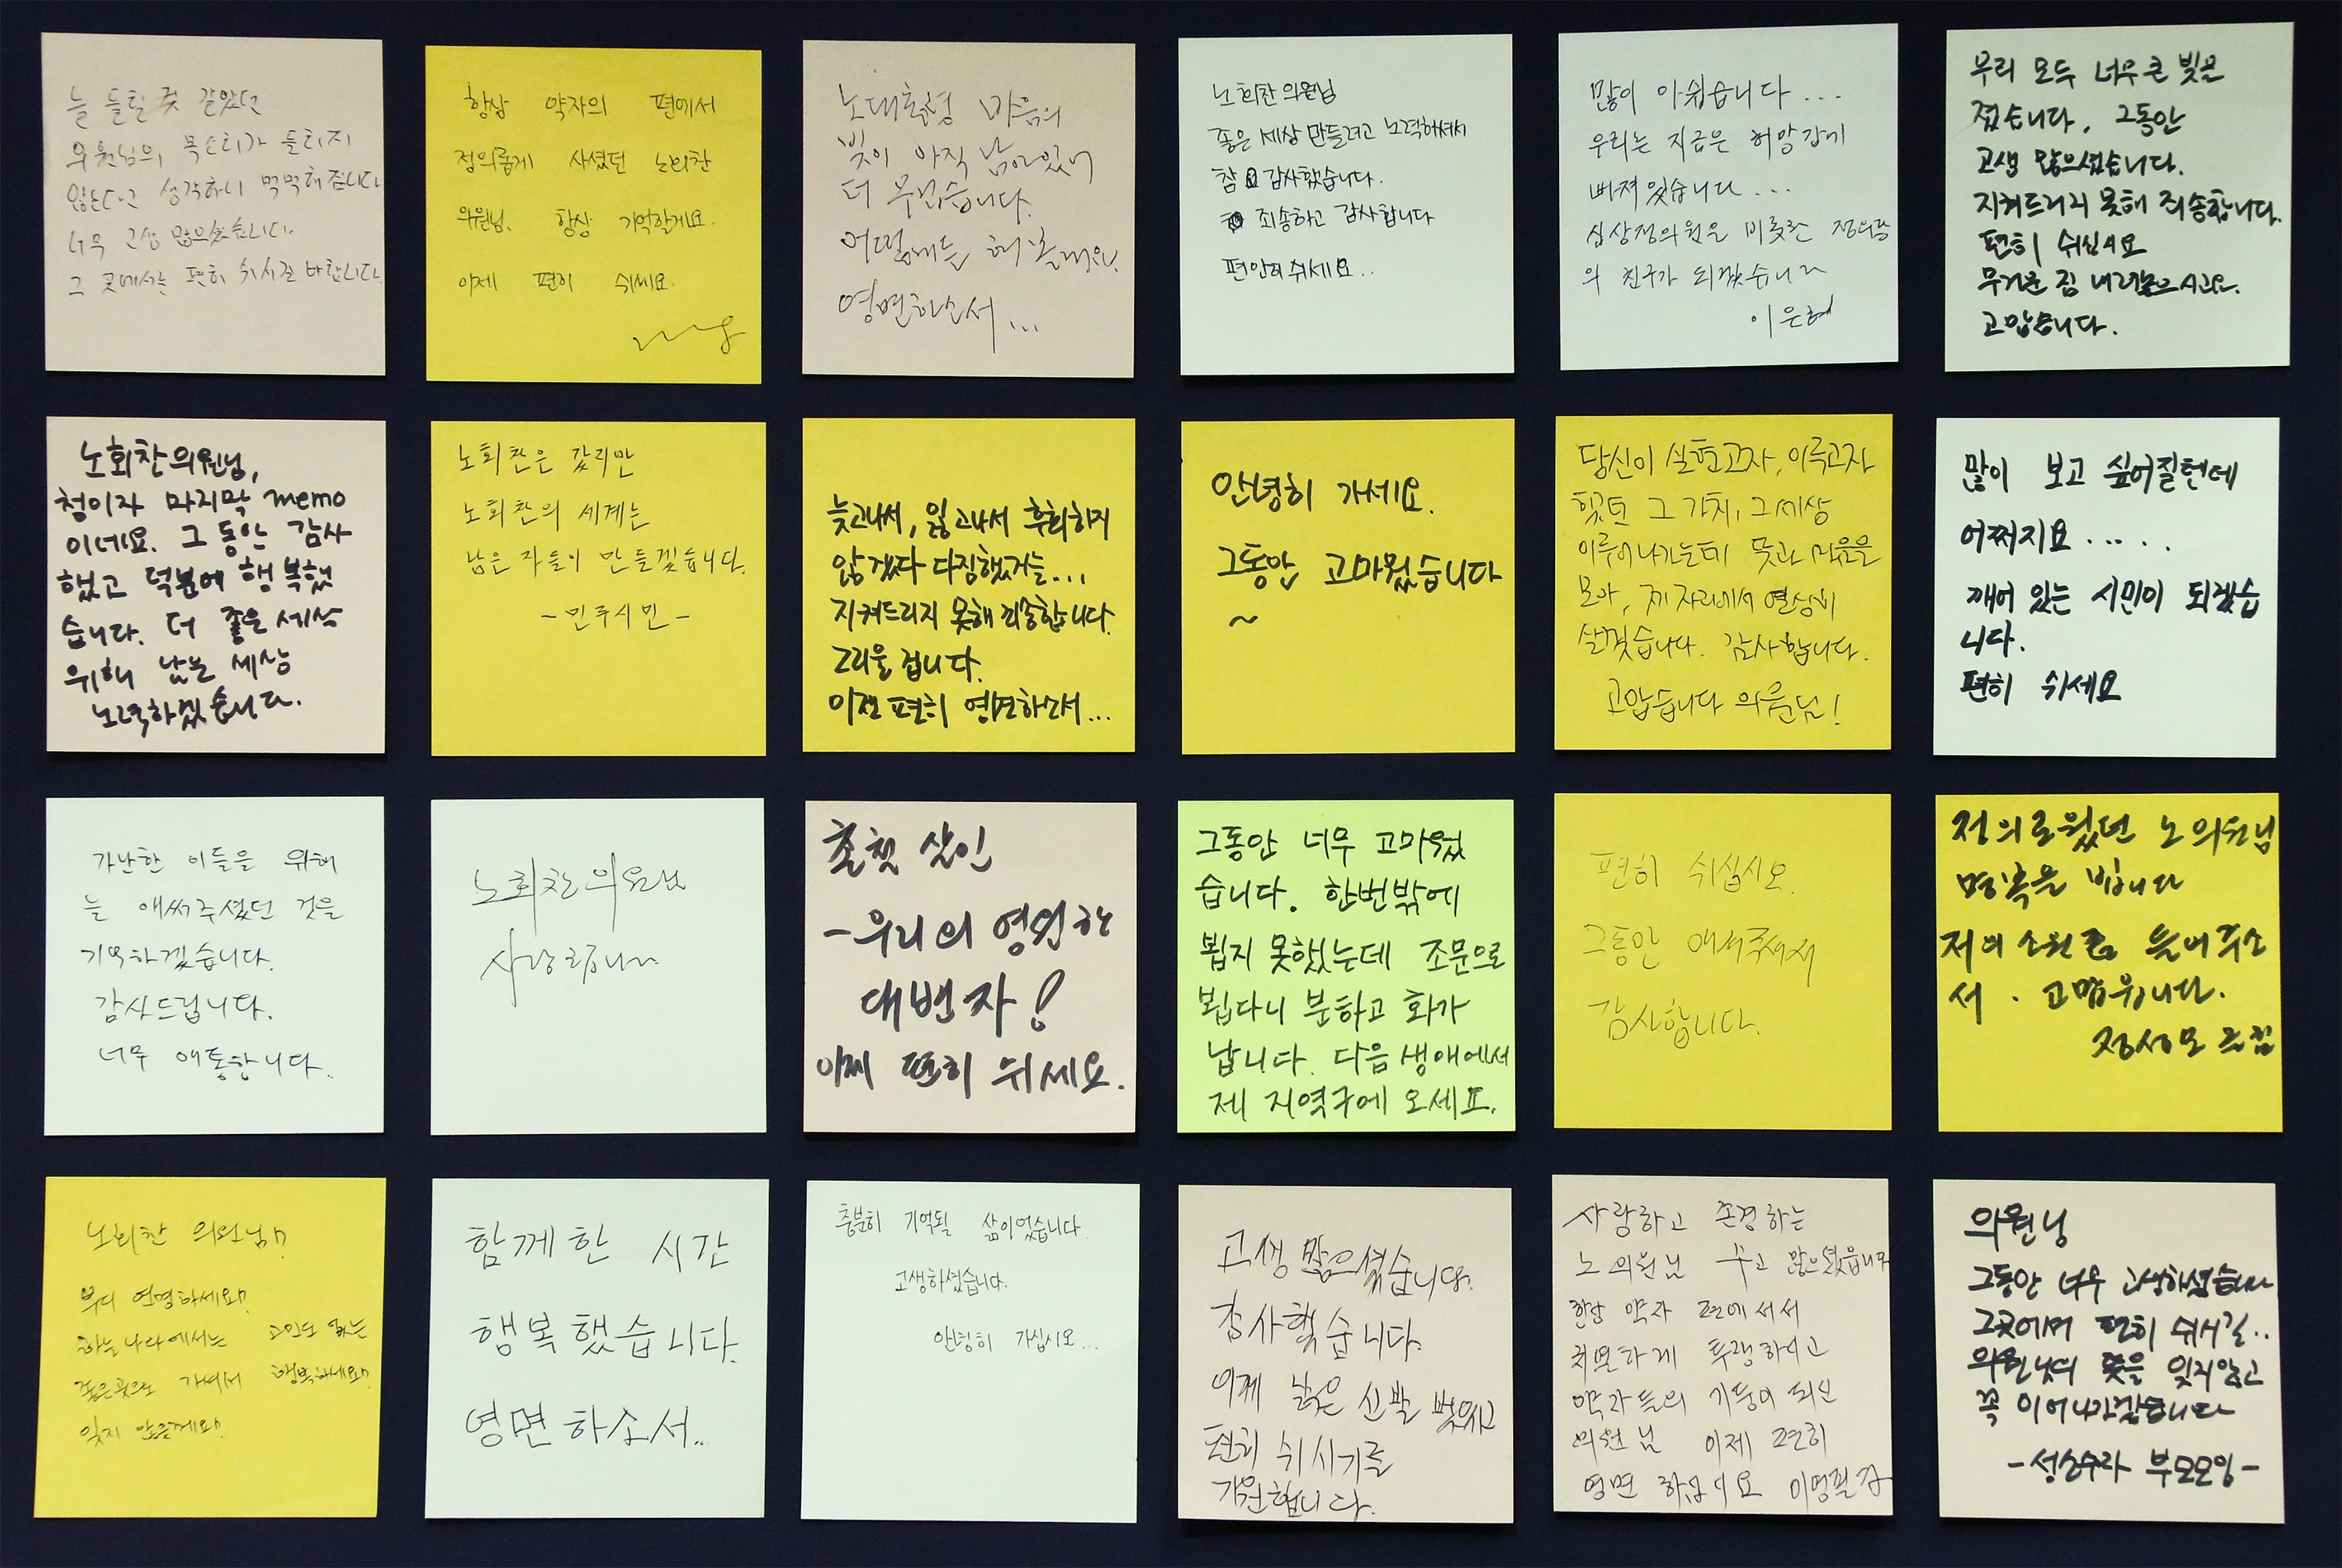 늘 들릴 것 같았던
의원님의 목소리가 들리지
않는다고 생각하니 먹먹해집니다
너무 고생 많으셨습니다.
그 곳에서는 편히 쉬시길 바랍니다.
항상 약자의 편에서
정의롭게 사셨던 노회찬
의원님. 항상 기억할게요.
이제 편히 쉬세요.
노대통령 마음의
빚이 아직 남아있어
더 무겁습니다.
어떨때는
영면하소서...
노회찬 의원님
좋은 세상 만들려고 노력해주셔서
참 감사했습니다.
죄송하고 감사합니다
편안히 쉬세요..
많이 아쉽습니다...
우리는 지금은 허망감에
빠져있습니다...
심상정의원을 비롯한 정의당
의 친구가 되겠습니다
이은혜
우리 모두 너무 큰 빚을
졌습니다. 그동안
고생 많으셨습니다.
지켜드리지 못해 죄송합니다.
편히 쉬십시요
무거운 짐 내려놓으시고요.
고맙습니다.
노회찬의원님,
첨이자 마지막 memo
이네요. 그동안 감사
했고 덕분에 행복했
습니다. 더 좋은 세상
위해 남는 세상
노력하겠습니다.
노회찬은 갔지만
노회찬의 세계는
남은 자들이 만들겠습니다.
-민주시민-
늦고나서, 잃고나서 후회하지
않겠다 다짐했거늘...
지켜드리지 못해 죄송합니다.
그리울 겁니다.
이젠 편히 영면하소서...
안녕히 가세요.
그동안 고마웠습니다
~
당신이 실현고자, 이루고자
했던 그 가치, 그 세상
이루어나가는데 뜻과 마음을
모아, 제 자리에서 열심히
살겠습니다. 감사합니다.
고맙습니다 의원님!
많이 보고 싶어질텐데
어쩌지요.....
깨어 있는 시민이 되겠습
니다.
편히 쉬세요
가난한 이들을 위해
늘 애써주셨던 것을
기억하겠습니다.
감사드립니다.
너무 애통합니다.
노회찬 의원님
사랑합니다
촌철살인
-우리의 영원한
대변자!
이제 편히 쉬세요.
그동안 너무 고마웠
습니다. 한번밖에
뵙지 못했는데 조문으로
뵙다니 분하고 화가
납니다. 다음 생애에서
제 지역구에 오세요.
편히 쉬십시오.
그동안 애써주셔서
감사합니다.
정의로웠던 노의원님
명복을 빕니다
저의 소원 들어주소
서. 고맙습니다.
정성모 드림
노회찬 의원님!!
부디 영면하세요!!
하늘나라에서는 고민도 없는
좋은곳으로 가셔서 행복하세요!!
잊지 않을게요!!
함께한 시간
행복했습니다.
영면하소서..
충분히 기억될 삶이었습니다.
고생하셨습니다.
안녕히 가십시오...
고생 많으셨습니다.
감사했습니다.
이제 낡은 신발 벗으시고
편히 쉬시기를
기원합니다.
사랑하고 존경하는
노 의원님 수고 많으셨읍니다
항상 약자 편에 서서
처절하게 투쟁하시고
약자들의 기둥이 되신
의원님 이제 편히
영면 하십시요
의원님
그동안 너무 고생하셨습니다
그곳에서 편히 쉬시길..
의원님의 뜻을 잊지않고
꼭 이어나가겠습니다
-성소수자 부모모임-